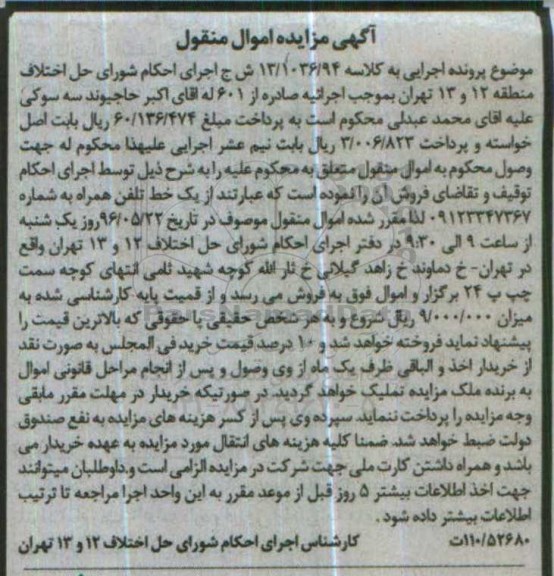 آگهی مزایده اموال منقول
موضوع پرونده اجرایی به کلاسه ۱۳/۱۰۳۶/۹۴ ش ج اجرای احکام شورای حل اختلاف
منطقه ۱۲ و ۱۳ تهران بموجب اجرائیه صادره از ۶۰۱ له اقای اکبر حاجیوند سه سوکی
علیه اقای محمد عبدلی محکوم است به پرداخت مبلغ ۶۰/۱۳۶/۴۷۴ ریال بابت اصل
خواسته و پرداخت ۳/۰۰۶/۸۲۳ ریال بابت نیم عشر اجرایی علیهذا محکوم له جهت
وصول محکوم به اموال منقول متعلق به محکوم علیه را به شرح ذیل توسط اجرای احکام
توقیف و تقاضای فروش آن را نموده است که عبارتند از یک خط تلفن همراه به شماره
۰۹۱۲۳۳۴۷۳۶۷ لذا مقرر شده اموال منقول موصوف در تاریخ ۹۶/۰۵/۲۲ روز یک شنبه
از ساعت ۹ الی ۹:۳۰ در دفتر اجرای احکام شورای حل اختلاف ۱۲ و ۱۳ تهران واقع
در تهران- خ دماوند خ زاهد گیلانی خ ثار الله کوچه شهید ثامی انتهای کوچه سمت
چپ پ ۲۴ برگزار و اموال فوق به فروش می رسد و از قمیت پایه کارشناسی شده به
میزان ۹/۰۰۰/۰۰۰ ریال شروع و به هر شخص حقیقی یا حقوقی که بالاترین قیمت را
پیشنهاد نماید فروخته خواهد شد و ۱۰ درصد قیمت خرید فی المجلس به صورت نقد
از خریدار اخذ و الباقی ظرف یک ماه از وی وصول و پس از انجام مراحل قانونی اموال
به برنده ملک مزایده تملیک خواهد گردید. در صورتیکه خریدار در مهلت مقرر مابقی
وجه مزایده را پرداخت ننماید. سپرده وی پس از کسر هزینه های مزایده به نفع صندوق
دولت ضبط خواهد شد. ضمنا کلیه هزینه های انتقال مورد مزایده به عهده خریدار می
باشد و همراه داشتن کارت ملی جهت شرکت در مزایده الزامی است و.داوطلبان میتوانند
جهت اخذ اطلاعات بیشتر ۵ روز قبل از موعد مقرر به این واحد اجرا مراجعه تا ترتیب
اطلاعات بیشتر داده شود .
۱۱۰/۵۲۶۸۰ت کارشناس اجرای احکام شورای حل اختلاف ۱۲ و ۱۳ تهران